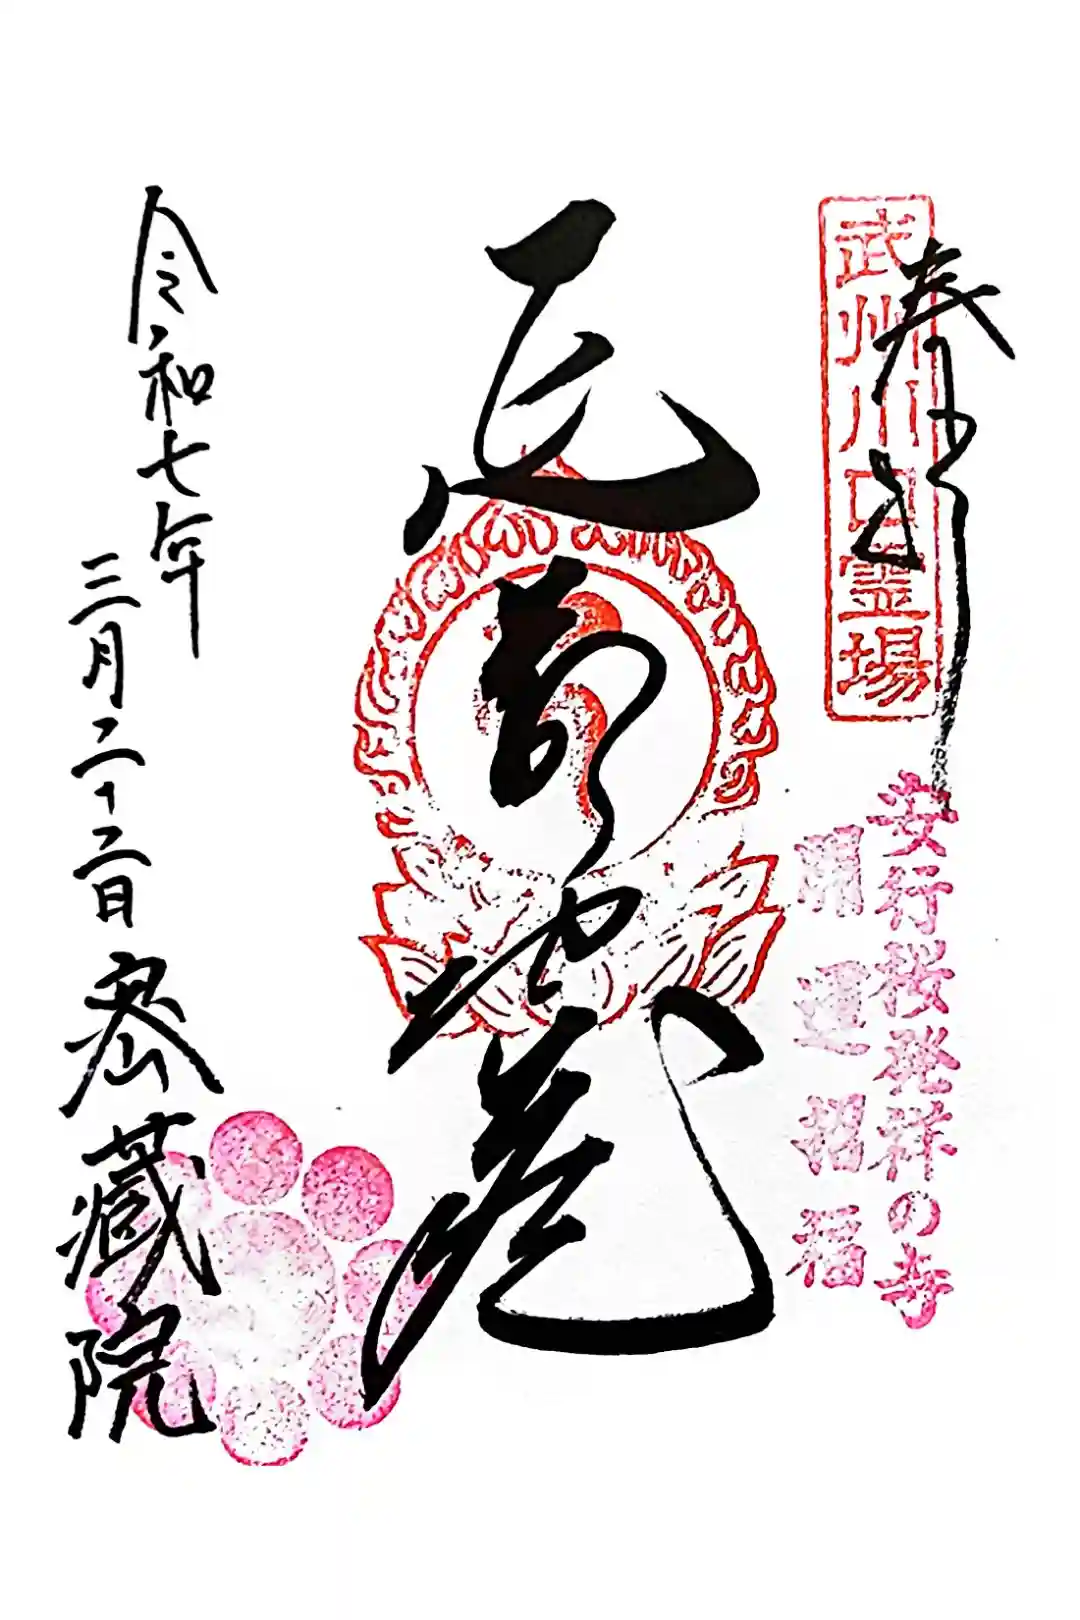 奉拝
武州川口霊場
安行桜発祥の寺
開運招福
延命地蔵
令和七年
三月二十二日
密蔵院